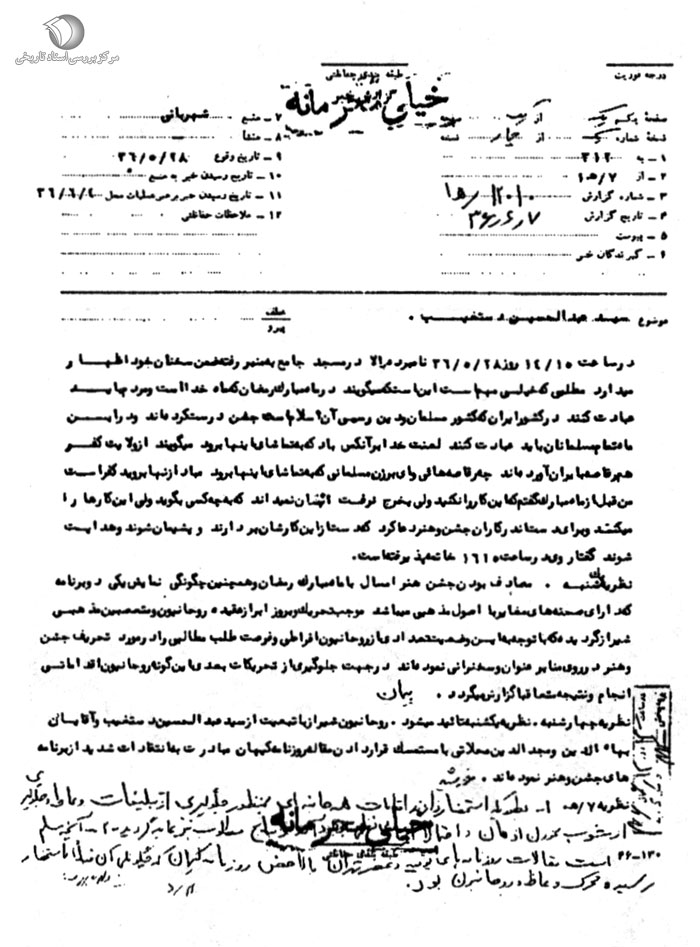 مرکز بررسی اسناد تاریخی
درجه فوریت
طبقه بندی حفاظتی
گزارش خبر
خیلی محرمانه
صفحه یک از یک
نسخه شماره یک از چهار نسخه
۱ - به ۳۱۲
۲ - از ۷/ه‍۱
۳ - شماره گزارش
۴ - تاریخ گزارش ۳۶/۶/۷
۵ - پیوست
۶ - گیرندگان خبر
۷ - منبع شهربانی
۸ - منشا
۹ - تاریخ وقوع ۳۶/۵/۲۸
۱۰ - تاریخ رسیدن خبر به منبع
۱۱ - تاریخ رسیدن خبر برهبر عملیات محل
۱۲ - ملاحظات حفاظتی
موضوع سید عبدالحسین دستغیب .
عطف
پیرو
در ساعت ۱۴/۱۵ روز ۳۶/۵/۲۸ نامبرده بالا در مسجد جامع به منبر رفته ضمن سخنان خود اظهار
میدارد مطلبی که خیلی مهم است این است که میگویند در ماه مبارک رمضان که ماه خدا است و مردم باید
عبادت کنند در کشور ایران که کشور مسلمان و دین رسمی آن اسلام است جشن درست کرده‌اند و در این
ماه تمام مسلمانان باید عبادت کنند لعنت خدا بر آنکس باد که به تماشای اینها برود میگویند از ولایت کفر
هم رقاصه بایران آورده‌اند چه رقاصه‌هائی وای بر زن مسلمانی که به تماشای اینها برود مبادا زنها بروید کفر است
من قبل از ماه مبارک گفتم که این کار را نکنید ولی بخرج نرفت انسان نمیداند که به چه کسی بگوید ولی این کارها را
میکنند و برای دست اندرکاران جشن و هنر دعا کرد که دست از این کارشان بردارند و پشیمان شوند و هدایت
شوند گفتار وی در ساعت ۱۶۱۰ خاتمه پذیرفته است.
نظریه یکشنبه . مصادف بودن جشن هنر امسال با ماه مبارک رمضان و همچنین چگونگی نمایش یکی دو برنامه
که دارای صحنه‌های مغایر با اصول مذهبی میباشد موجب تحریک و بروز ابراز عقیده روحانیون و متعصبین مذهبی
شیراز گردیده که با توجه باین وضعیت تعدادی از روحانیون افراطی و فرصت طلب مطالبی را در مورد تحریف جشن
و هنر در روی منابر عنوان و سخنرانی نموده‌اند در جهت جلوگیری از تحریکات بعدی این گونه روحانیون اقداماتی
انجام و نتیجه متعاقبا گزارش میگردد . پیمان
نظریه چهارشنبه . نظریه یکشنبه تائید میشود . روحانیون شیراز با تبعیت از سید عبدالحسین دستغیب و آقایان
بهاءالدین و مجدالدین محلاتی با مستمسک قرار دادن مقاله روزنامه کیهان مبادرت به انتقادات شدید از برنامه
های جشن و هنر نموده‌اند .
نظریه ۷/ه‍ . ۱ - بمنظور جلوگیری از تبلیغات وعاظ و
خیلی محرمانه
طبقه بندی حفاظتی
۶۶-۱۳۰
است مقالات روزنامه روزنامه کیهان که
محرک وعاظ و روحانیون بود.